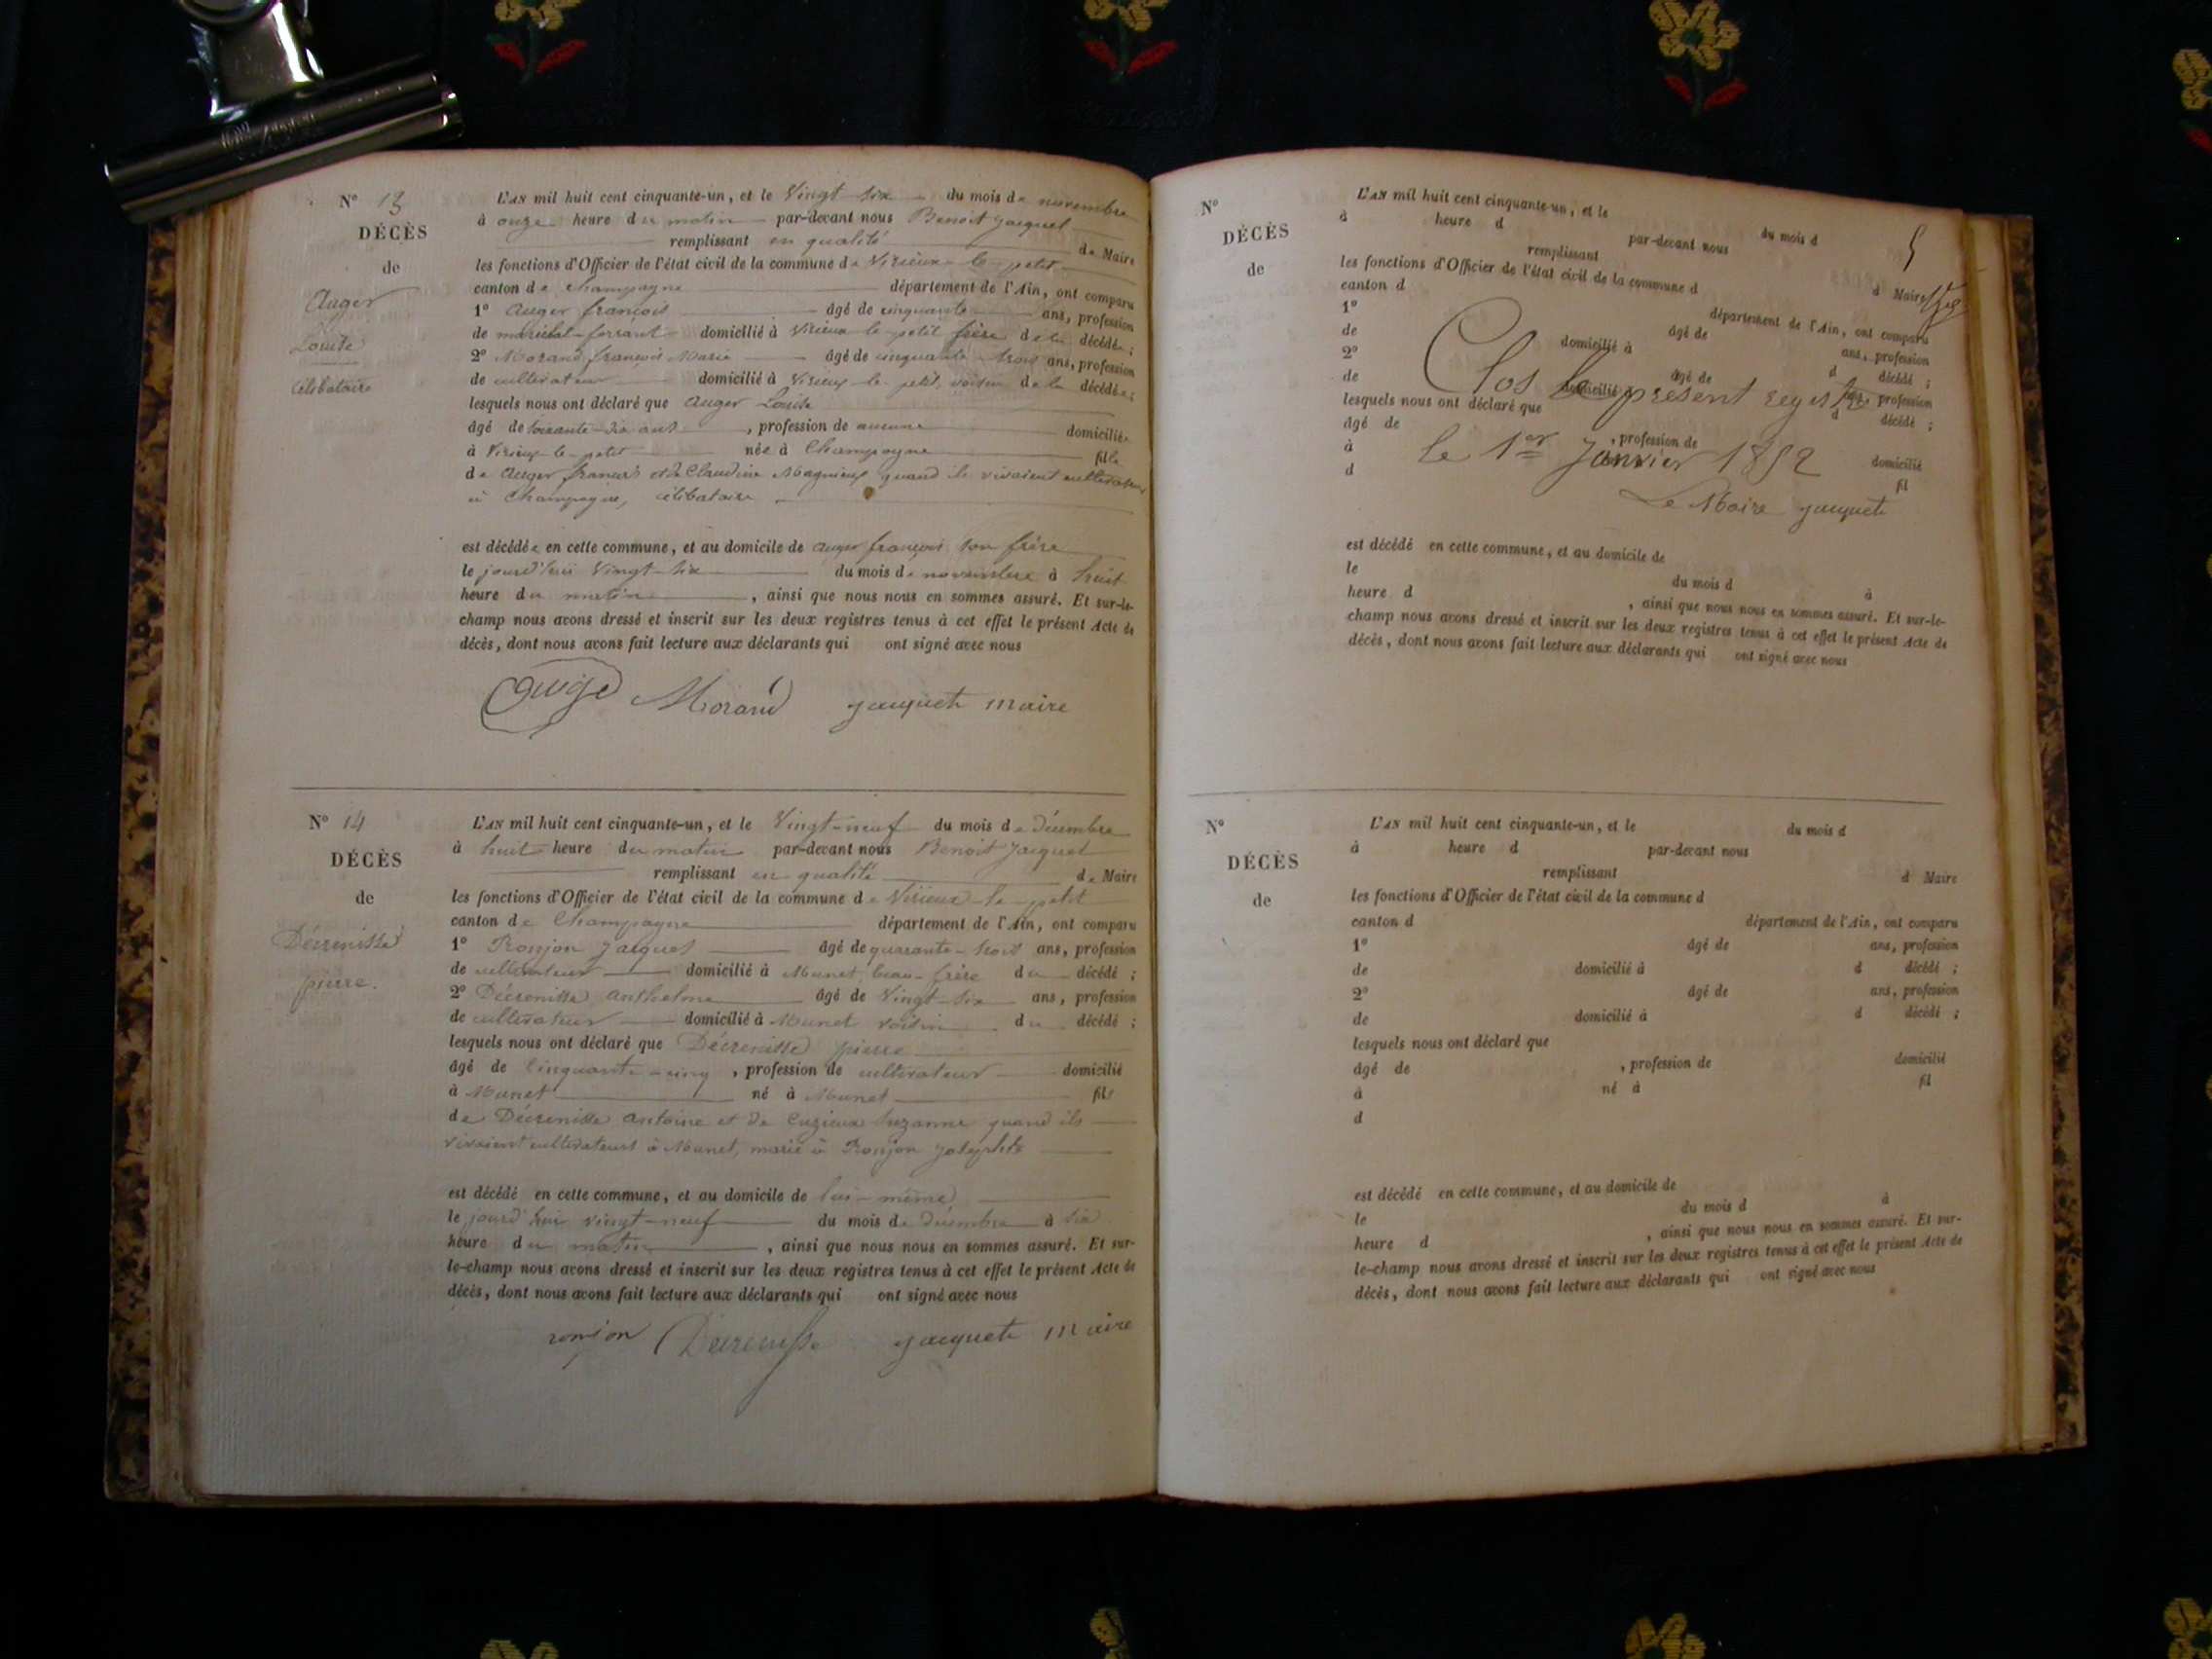 N° 13
DÉCÈS
de
Auger
Louise
célibataire
L'AN mil huit cent cinquante-un, et le Vingt-six du mois de novembre
à onze heure du matin par-devant nous Benoit Jacquet
remplissant en qualité de Maire
les fonctions d'Officier de l'état civil de la commune de Virieux-le-petit
canton de Champagne département de l'Ain, ont comparu
1° Auger françois âgé de cinquante ans, profession
de maréchal-ferrant domicilié à Virieux-le-petit frère de la décédée ;
2° Morand françois Marie âgé de cinquante-trois ans, profession
de cultivateur domicilié à Virieux-le-petit, voisin de la décédée ;
lesquels nous ont déclaré que Auger Louise
âgé de soixante-six ans, profession de aucune domiciliée
à Virieux-le-petit née à Champagne fille
de Auger françois et de Claudine Magnieux quand ils vivaient cultivateurs
à Champagne, célibataire
est décédée en cette commune, et au domicile de Auger françois son frère
le jourd'hui Vingt-six du mois de novembre à huit
heure du matin, ainsi que nous nous en sommes assuré. Et sur-le-
champ nous avons dressé et inscrit sur les deux registres tenus à cet effet le présent Acte de
décès, dont nous avons fait lecture aux déclarants qui ont signé avec nous
auge Morand jacquet maire
N° 14
DÉCÈS
de
Décrenisse
pierre.
L'AN mil huit cent cinquante-un, et le Vingt-neuf du mois de décembre
à huit heure du matin par-devant nous Benoit Jacquet
remplissant en qualité de Maire
les fonctions d'Officier de l'état civil de la commune de Virieux-le-petit
canton de Champagne département de l'Ain, ont comparu
1° Ronjon Jacques âgé de quarante-trois ans, profession
de cultivateur domicilié à Munet, beau-frère du décédé ;
2° Décrenisse Anthelme âgé de Vingt-six ans, profession
de cultivateur domicilié à Munet voisin du décédé ;
lesquels nous ont déclaré que Décrenisse pierre
âgé de Cinquante-cinq, profession de cultivateur domicilié
à Munet né à Munet fils
de Décrenisse antoine et de Cuzieux Suzanne quand ils
vivaient cultivateurs à Munet, marié à Ronjon Josephte
est décédé en cette commune, et au domicile de lui-même
le jourd'hui vingt-neuf du mois de décembre à six
heure du matin, ainsi que nous nous en sommes assuré. Et sur-
le-champ nous avons dressé et inscrit sur les deux registres tenus à cet effet le présent Acte de
décès, dont nous avons fait lecture aux déclarants qui ont signé avec nous
ronjon Décrenisse jacquet maire
N°
DÉCÈS
de
L'AN mil huit cent cinquante-un, et le du mois d
à heure d par-devant nous
remplissant d Maire
les fonctions d'Officier de l'état civil de la commune d
canton d département de l'Ain, ont comparu
1° âgé de ans, profession
de domicilié à d décédé ;
2° âgé de ans, profession
de domicilié à d décédé ;
Clos le présent registre
lesquels nous ont déclaré que
âgé de , profession de domicilié
à né à fil
d
le 1er Janvier 1852
Le Maire jacquet
est décédé en cette commune, et au domicile de
le du mois d à
heure d , ainsi que nous nous en sommes assuré. Et sur-le-
champ nous avons dressé et inscrit sur les deux registres tenus à cet effet le présent Acte de
décès, dont nous avons fait lecture aux déclarants qui ont signé avec nous
N°
DÉCÈS
de
L'AN mil huit cent cinquante-un, et le du mois d
à heure d par-devant nous
remplissant d Maire
les fonctions d'Officier de l'état civil de la commune d
canton d département de l'Ain, ont comparu
1° âgé de ans, profession
de domicilié à d décédé ;
2° âgé de ans, profession
de domicilié à d décédé ;
lesquels nous ont déclaré que
âgé de , profession de domicilié
à né à fil
d
est décédé en cette commune, et au domicile de
le du mois d à
heure d , ainsi que nous nous en sommes assuré. Et sur-
le-champ nous avons dressé et inscrit sur les deux registres tenus à cet effet le présent Acte de
décès, dont nous avons fait lecture aux déclarants qui ont signé avec nous